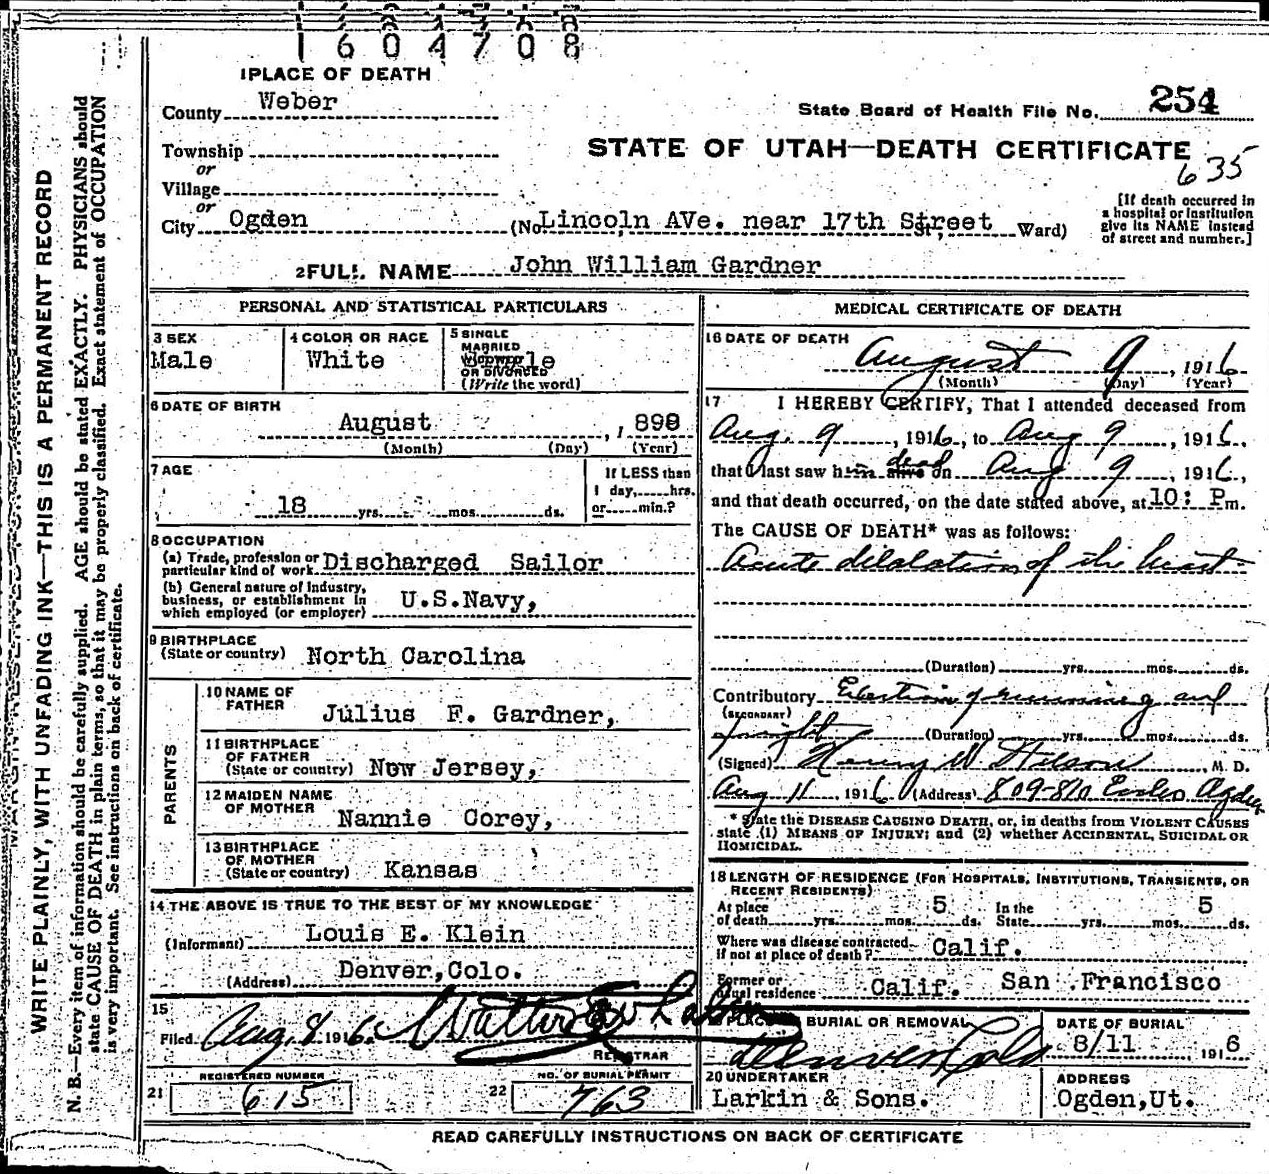 1604708
1 PLACE OF DEATH
County Weber
State Board of Health File No. 254
Township
or
Village
or
STATE OF UTAH—DEATH CERTIFICATE
635
City Ogden (No Lincoln AVe. near 17th Street St.; Ward)
[If death occurred in
a hospital or institution
give its NAME instead
of street and number.]
2 FULL NAME John William Gardner
PERSONAL AND STATISTICAL PARTICULARS
3 SEX
Male
4 COLOR OR RACE
White
5 SINGLE
MARRIED
WIDOWED
OR DIVORCED
(Write the word)
6 DATE OF BIRTH
August , 1898
(Month) (Day) (Year)
7 AGE
18 yrs. mos. ds.
If LESS than
1 day, hrs.
or min.?
8 OCCUPATION
(a) Trade, profession or
particular kind of work Discharged Sailor
(b) General nature of industry,
business, or establishment in
which employed (or employer) U.S.Navy,
9 BIRTHPLACE
(State or country) North Carolina
PARENTS
10 NAME OF
FATHER Julius F. Gardner,
11 BIRTHPLACE
OF FATHER
(State or country) New Jersey,
12 MAIDEN NAME
OF MOTHER Nannie Corey,
13 BIRTHPLACE
OF MOTHER
(State or country) Kansas
14 THE ABOVE IS TRUE TO THE BEST OF MY KNOWLEDGE
(Informant) Louis E. Klein
(Address) Denver,Colo.
15
Filed Aug. 8 1916
REGISTRAR
REGISTERED NUMBER
21 615
NO. OF BURIAL PERMIT
22 763
MEDICAL CERTIFICATE OF DEATH
16 DATE OF DEATH
August 9, 1916
(Month) (Day) (Year)
17 I HEREBY CERTIFY, That I attended deceased from
Aug. 9, 1916, to Aug 9, 1916,
that I last saw him alive dead on Aug 9, 1916,
and that death occurred, on the date stated above, at 10: Pm.
The CAUSE OF DEATH* was as follows:
Acute dilalation of the heart
(Duration) yrs. mos. ds.
Contributory of running and
(SECONDARY)
(Duration) yrs. mos. ds.
(Signed) Henry W M. D.
Aug 11, 1916 (Address) 809-810 Eccles Ogden
* State the DISEASE CAUSING DEATH, or, in deaths from VIOLENT CAUSES
state (1) MEANS OF INJURY; and (2) whether ACCIDENTAL, SUICIDAL OR
HOMICIDAL.
18 LENGTH OF RESIDENCE (FOR HOSPITALS, INSTITUTIONS, TRANSIENTS, OR
RECENT RESIDENTS)
At place
of death yrs. mos. 5 ds. In the
State yrs. mos. 5 ds.
Where was disease contracted
if not at place of death? Calif.
Former or
usual residence Calif. San Francisco
PLACE OF BURIAL OR REMOVAL
Denver Colo
DATE OF BURIAL
8/11 1916
20 UNDERTAKER
Larkin & Sons.
ADDRESS
Ogden,Ut.
READ CAREFULLY INSTRUCTIONS ON BACK OF CERTIFICATE
WRITE PLAINLY, WITH UNFADING INK—THIS IS A PERMANENT RECORD
N. B.—Every item of information should be carefully supplied. AGE should be stated EXACTLY. PHYSICIANS should
state CAUSE OF DEATH in plain terms, so that it may be properly classified. Exact statement of OCCUPATION
is very important. See instructions on back of certificate.